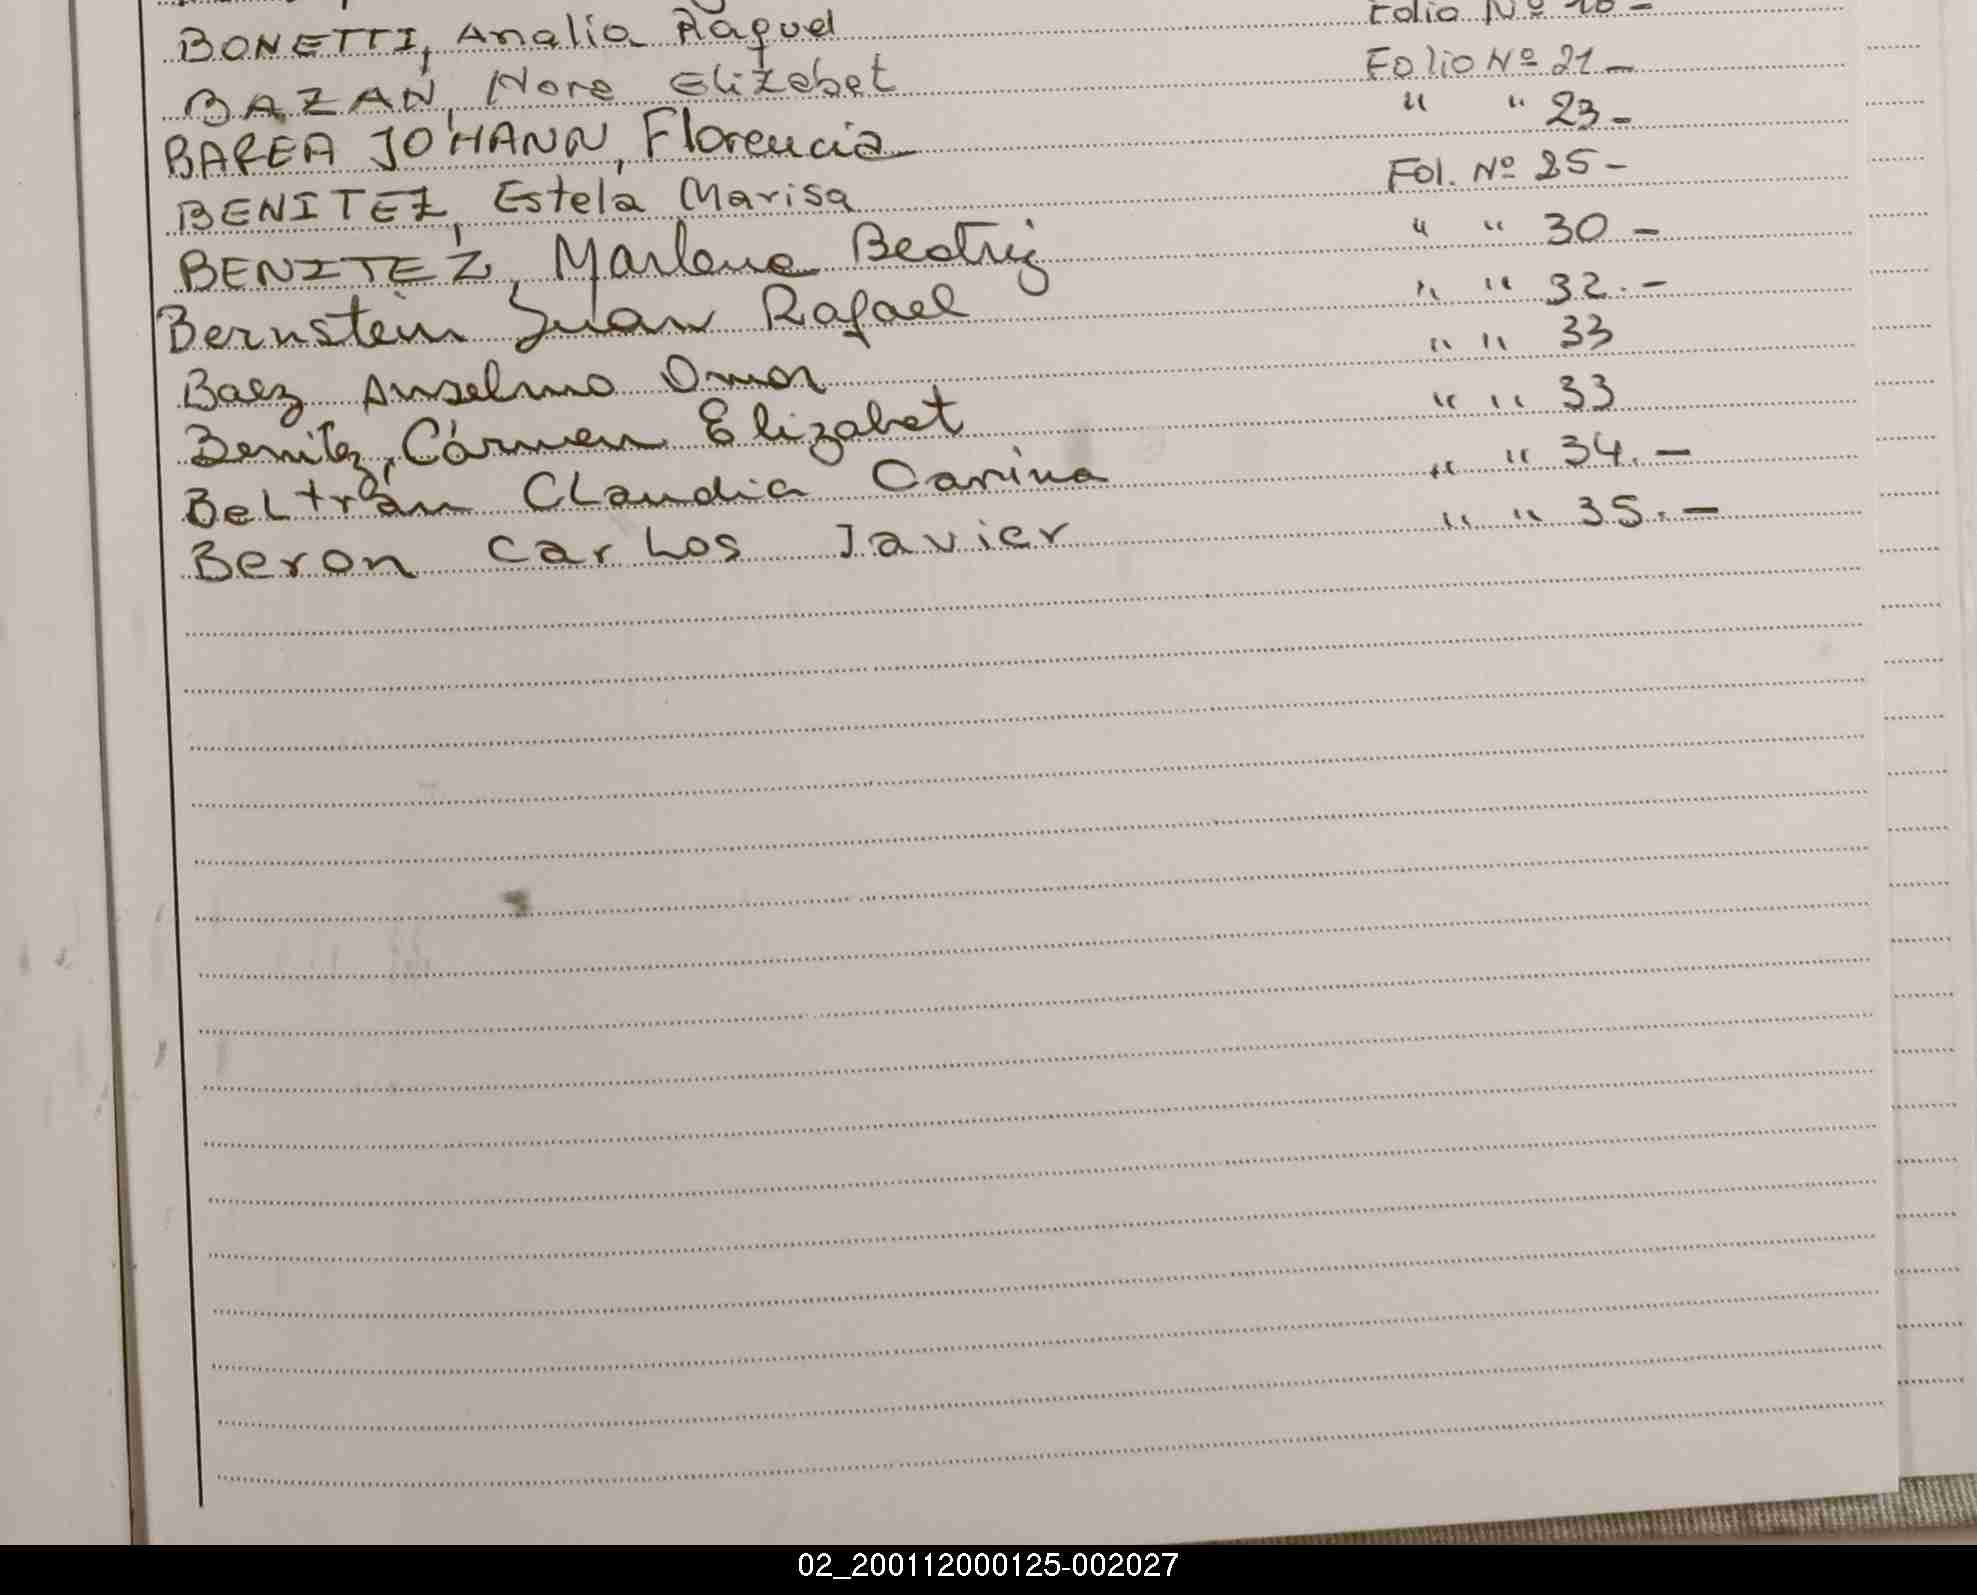 BONETTI, Analia Raquel Folio Nº 18-
BAZAN, Nora Elizabet Folio Nº 21-
BAREA JOHANN, Florencia " " 23-
BENITEZ, Estela Marisa Fol. Nº 25-
BENITEZ, Marlene Beatriz " " 30-
Bernstein Juan Rafael " " 32.-
Baez Anselmo Omar " " 33
Benitez, Carmen Elizabet " " 33
Beltrán Claudia Carina " " 34.-
Beron Carlos Javier " " 35.-
02_200112000125-002027